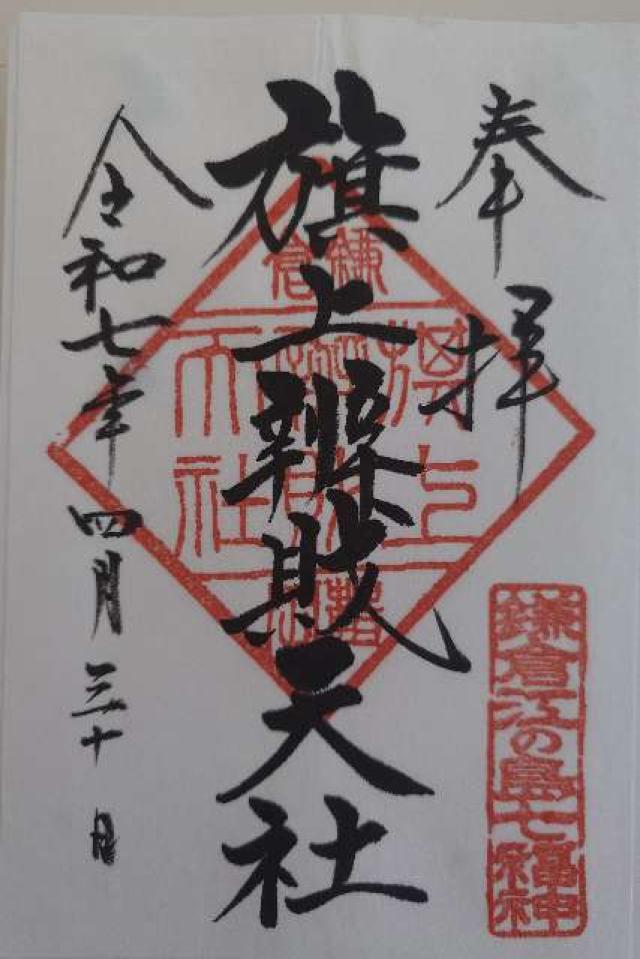 奉拝
鎌倉江の島七福神
旗上辨財天社
鎌倉
旗上
天社
令和七年四月三十日